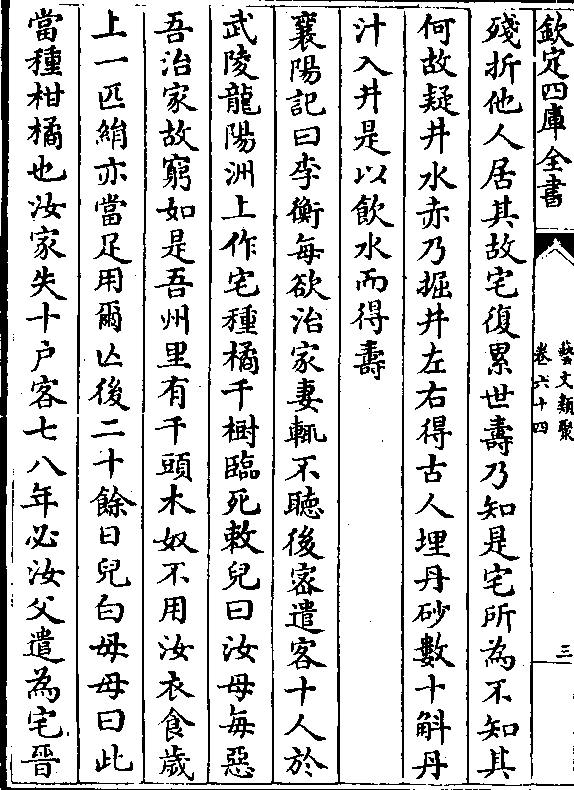 欽定四庫全書
藝文類聚
卷六十四
三
殘折他人居其故宅復累世壽乃知是宅所為不知其
何故疑井水赤乃掘井左右得古人埋丹砂數十斛丹
汁入井是以飲水而得壽
襄陽記曰李衡每欲治家妻輒不聽後宻遣客十人於
武陵龍陽洲上作宅種橘千樹臨死敕兒曰汝母每惡
吾治家故窮如是吾州里有千頭木奴不用汝衣食歲
上一匹絹亦當足用爾亾後二十餘日兒白母母曰此
當種柑橘也汝家失十户客七八年必汝父遣為宅晉